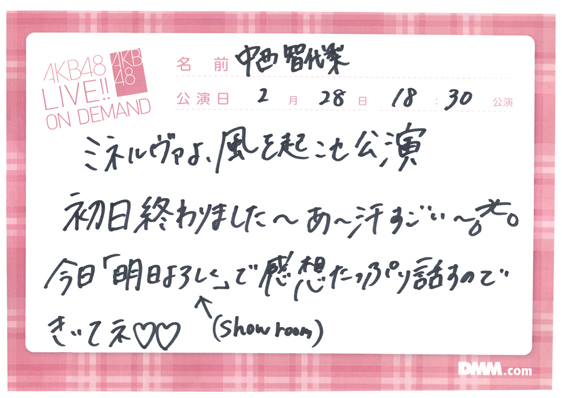 AKB48
LIVE!!
ON DEMAND
AKB
48
名 前 中西智代梨
公演日 2 月 28 日 18 : 30 公演
ミネルヴァよ、風を起こせ公演
初日終わりました〜あ〜汗すごい〜
今日「明日よろしく」で感想たっぷり話すので
きいてネ♡♡ (Showroom)
DMM.com